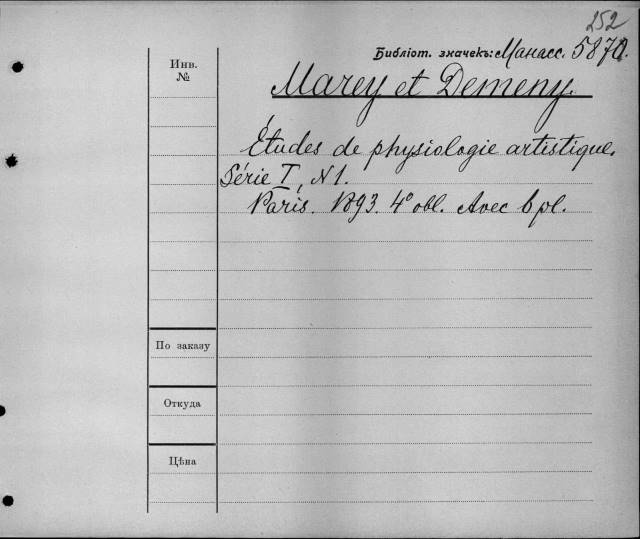 252
Библіот. значекъ: Манасс. 5870.
Инв.
№
Marey et Demeny.
Études de physiologie artistique.
Série I, N 1.
Paris. 1893. 4° obl. Avec 6 pl.
По заказу
Откуда
Цѣна